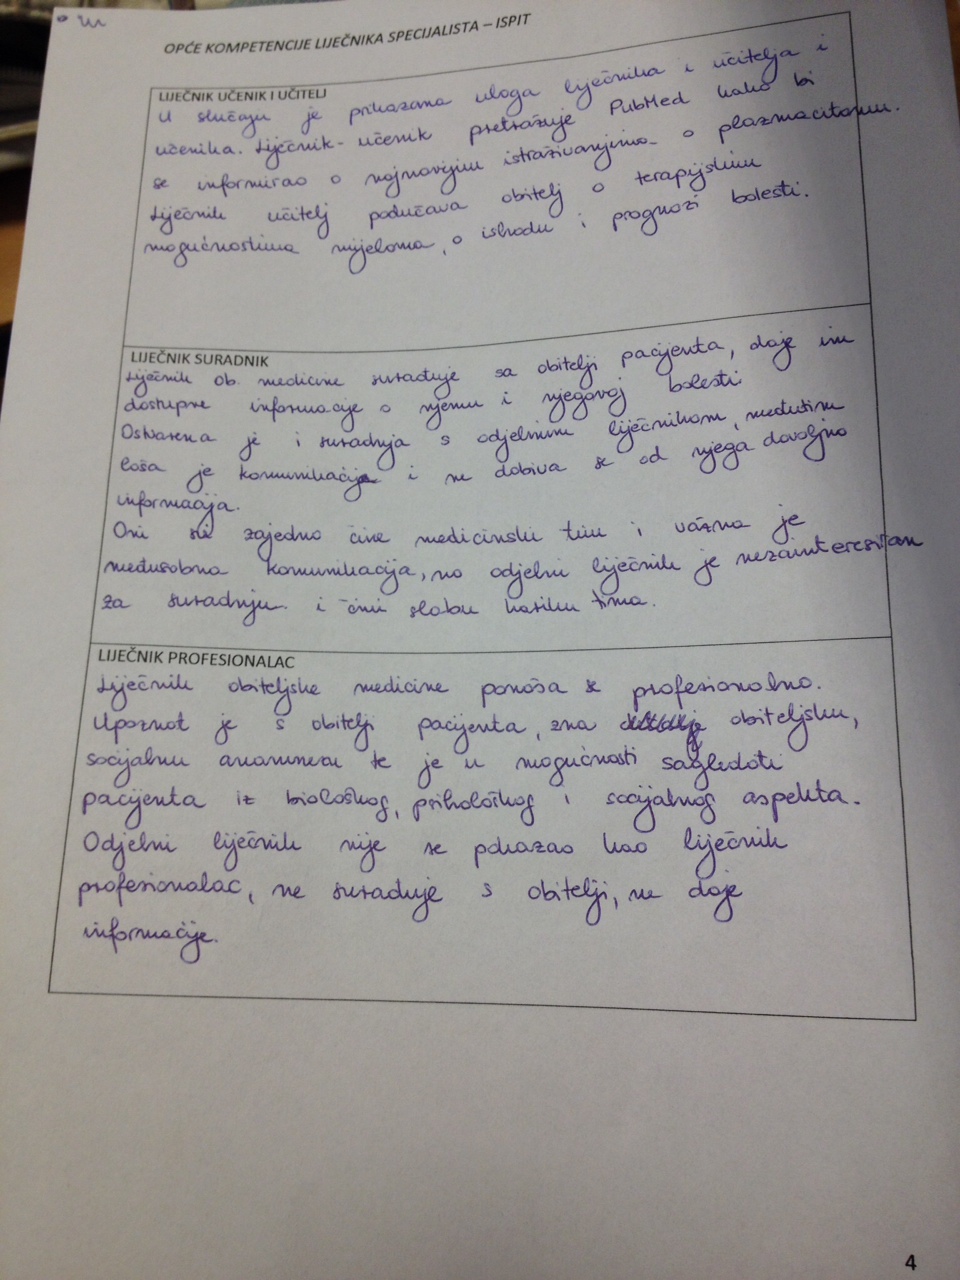 OPĆE KOMPETENCIJE LIJEČNIKA SPECIJALISTA – ISPIT
LIJEČNIK UČENIK I UČITELJ
U slučaju je prikazana uloga liječnika i učitelja i
učenika. Liječnik-učenik pretražuje PubMed kako bi
se informirao o najnovijim istraživanjima o plazmacitomu.
Liječnik učitelj podučava obitelj o terapijskim
mogućnostima mijeloma, o ishodu i prognozi bolesti.
LIJEČNIK SURADNIK
Liječnik ob. medicine surađuje sa obitelji pacijenta, daje im
dostupne informacije o njemu i njegovoj bolesti.
Ostvarena je i suradnja s odjelnim liječnikom, međutim
loša je komunikacija i ne dobiva se od njega dovoljno
informacija.
Oni svi zajedno čine medicinski tim i važna je
međusobna komunikacija, no odjelni liječnik je nezainteresiran
za suradnju i čini slabu kariku tima.
LIJEČNIK PROFESIONALAC
Liječnik obiteljske medicine ponaša se profesionalno.
Upoznat je s obitelji pacijenta, zna obiteljsku,
socijalnu anamnezu te je u mogućnosti sagledati
pacijenta iz biološkog, psihološkog i socijalnog aspekta.
Odjelni liječnik nije se pokazao kao liječnik
profesionalac, ne surađuje s obitelji, ne daje
informacije.
4